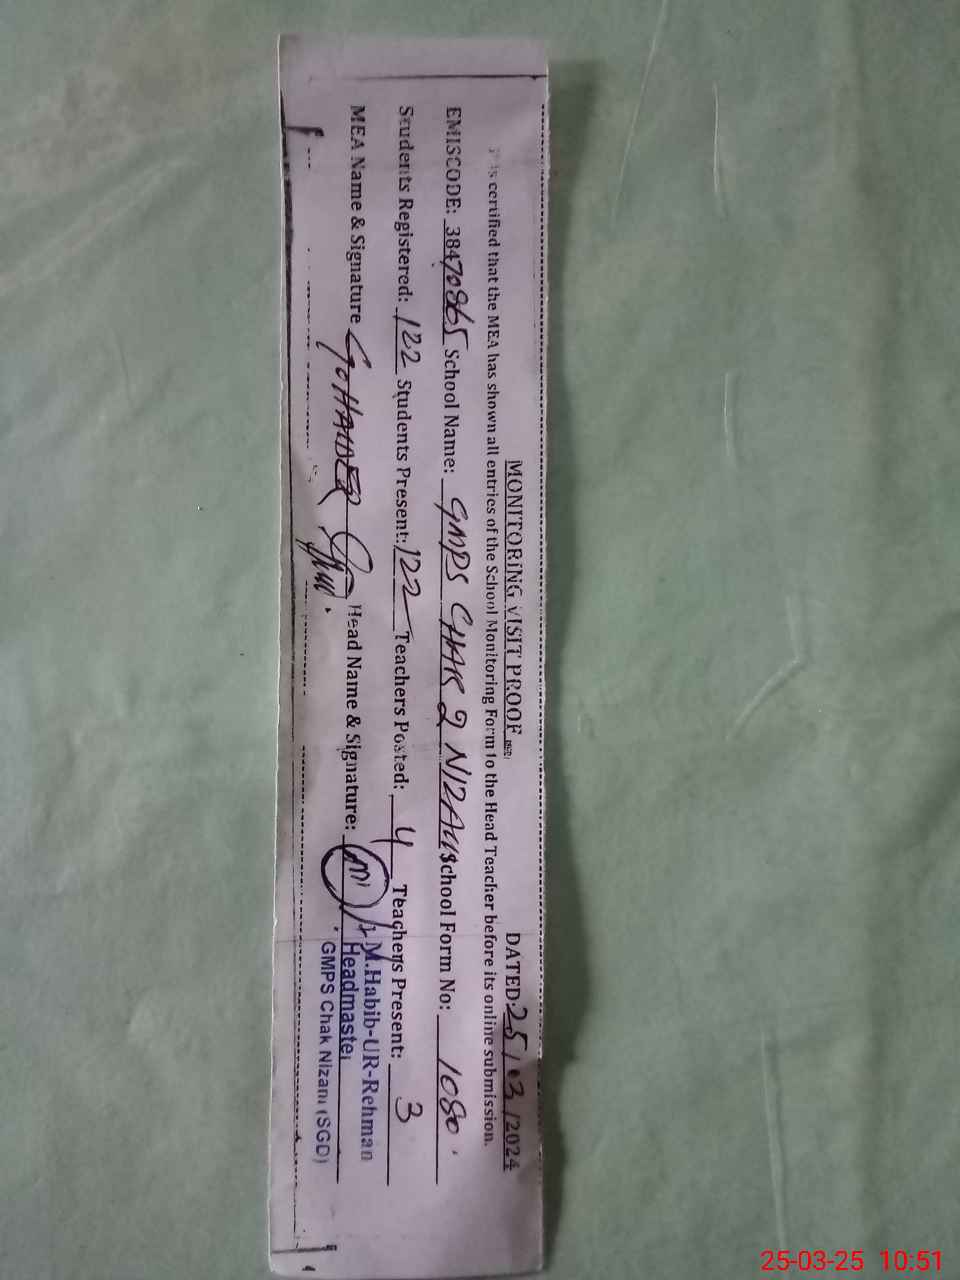 MONITORING VISIT PROOF DATED: 25/03/2024
is certified that the MEA has shown all entries of the School Monitoring Form to the Head Teacher before its online submission.
EMISCODE: 38470865 School Name: GMPS CHAK 2 NIZAM School Form No: 1080
Students Registered: 122 Students Present: 122 Teachers Posted: 4 Teachers Present: 3
MEA Name & Signature Head Name & Signature:
M.Habib-UR-Rehman
Headmaster
GMPS Chak Nizam (SGD)
25-03-25 10:51